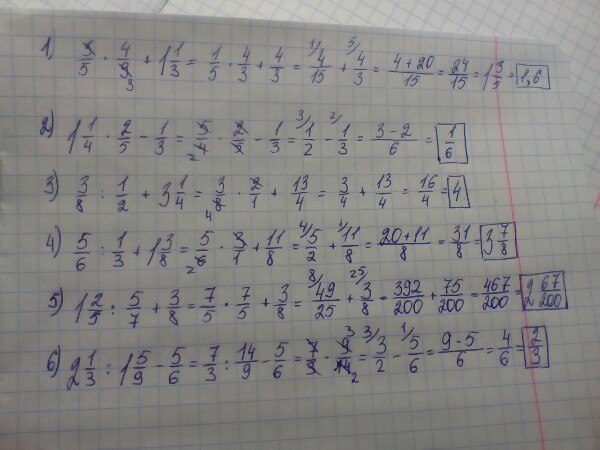 1) 3/5 · 4/9 3 + 1 1/3 = 1/5 · 4/3 + 4/3 = 1/ 4/15 + 5/ 4/3 = 4+20/15 = 24/15 = 1 3/5 = 1,6
2) 1 1/4 · 2/5 - 1/3 = 5/4 2 · 2/5 - 1/3 = 3/ 1/2 - 2/ 1/3 = 3-2/6 = 1/6
3) 3/8 : 1/2 + 3 1/4 = 3/8 4 · 2/1 + 13/4 = 3/4 + 13/4 = 16/4 = 4
4) 5/6 : 1/3 + 1 3/8 = 5/6 2 · 3/1 + 11/8 = 4/ 5/2 + 1/ 11/8 = 20+11/8 = 31/8 = 3 7/8
5) 1 2/5 : 5/7 + 3/8 = 7/5 · 7/5 + 3/8 = 8/ 49/25 + 25/ 3/8 = 392/200 + 75/200 = 467/200 = 2 67/200
6) 2 1/3 : 1 5/9 - 5/6 = 7/3 : 14/9 - 5/6 = 7/3 · 9 3/14 2 = 3/ 3/2 - 1/ 5/6 = 9-5/6 = 4/6 = 2/3